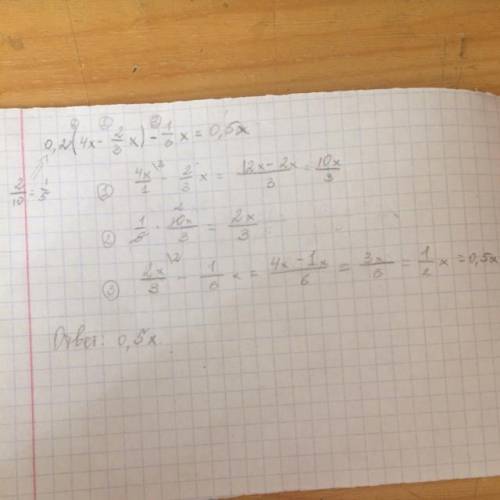 ② ① ③
0,2(4x - 2/3 x) - 1/6 x = 0,5x
2/10 = 1/5
① 4x/1 \3 - 2/3 x = (12x - 2x)/3 = 10x/3
② 1/5 · 10x/3 = 2x/3
③ 2x/3 \2 - 1/6 x = (4x - 1x)/6 = 3x/6 = 1/2 x = 0,5x
Ответ: 0,5x